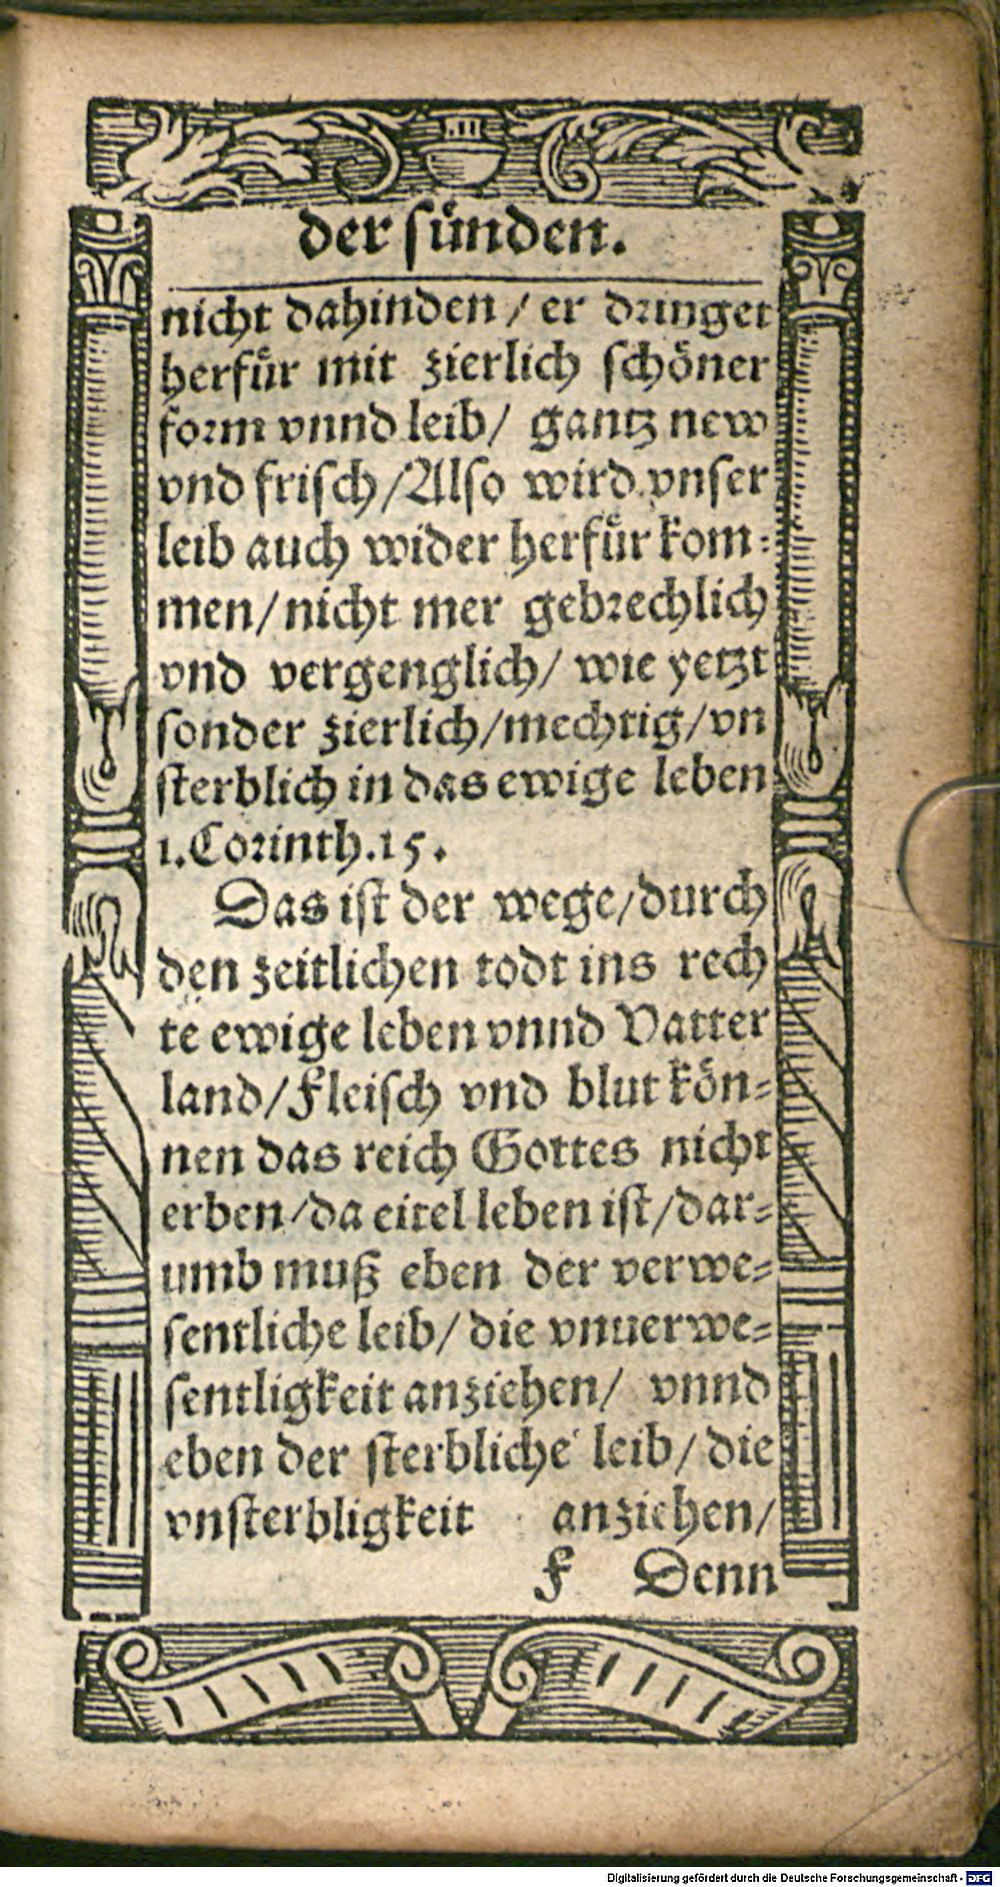 der sünden.
nicht dahinden / er dringet
herfür mit zierlich schöner
form vnnd leib / gantz new
vnd frisch / Also wird vnser
leib auch wider herfür kom⸗
men / nicht mer gebrechlich
vnd vergenglich / wie yetzt
sonder zierlich / mechtig / vn
sterblich in das ewige leben
1. Corinth. 15.
Das ist der wege / durch
den zeitlichen todt ins rech
te ewige leben vnnd Vatter
land / Fleisch vnd blut kön⸗
nen das reich Gottes nicht
erben / da eitel leben ist / dar⸗
umb muß eben der verwe⸗
sentliche leib / die vnuerwe⸗
sentligkeit anziehen / vnnd
eben der sterbliche leib / die
vnsterbligkeit anziehen /
F Denn
Digitalisierung gefördert durch die Deutsche Forschungsgemeinschaft - DFG